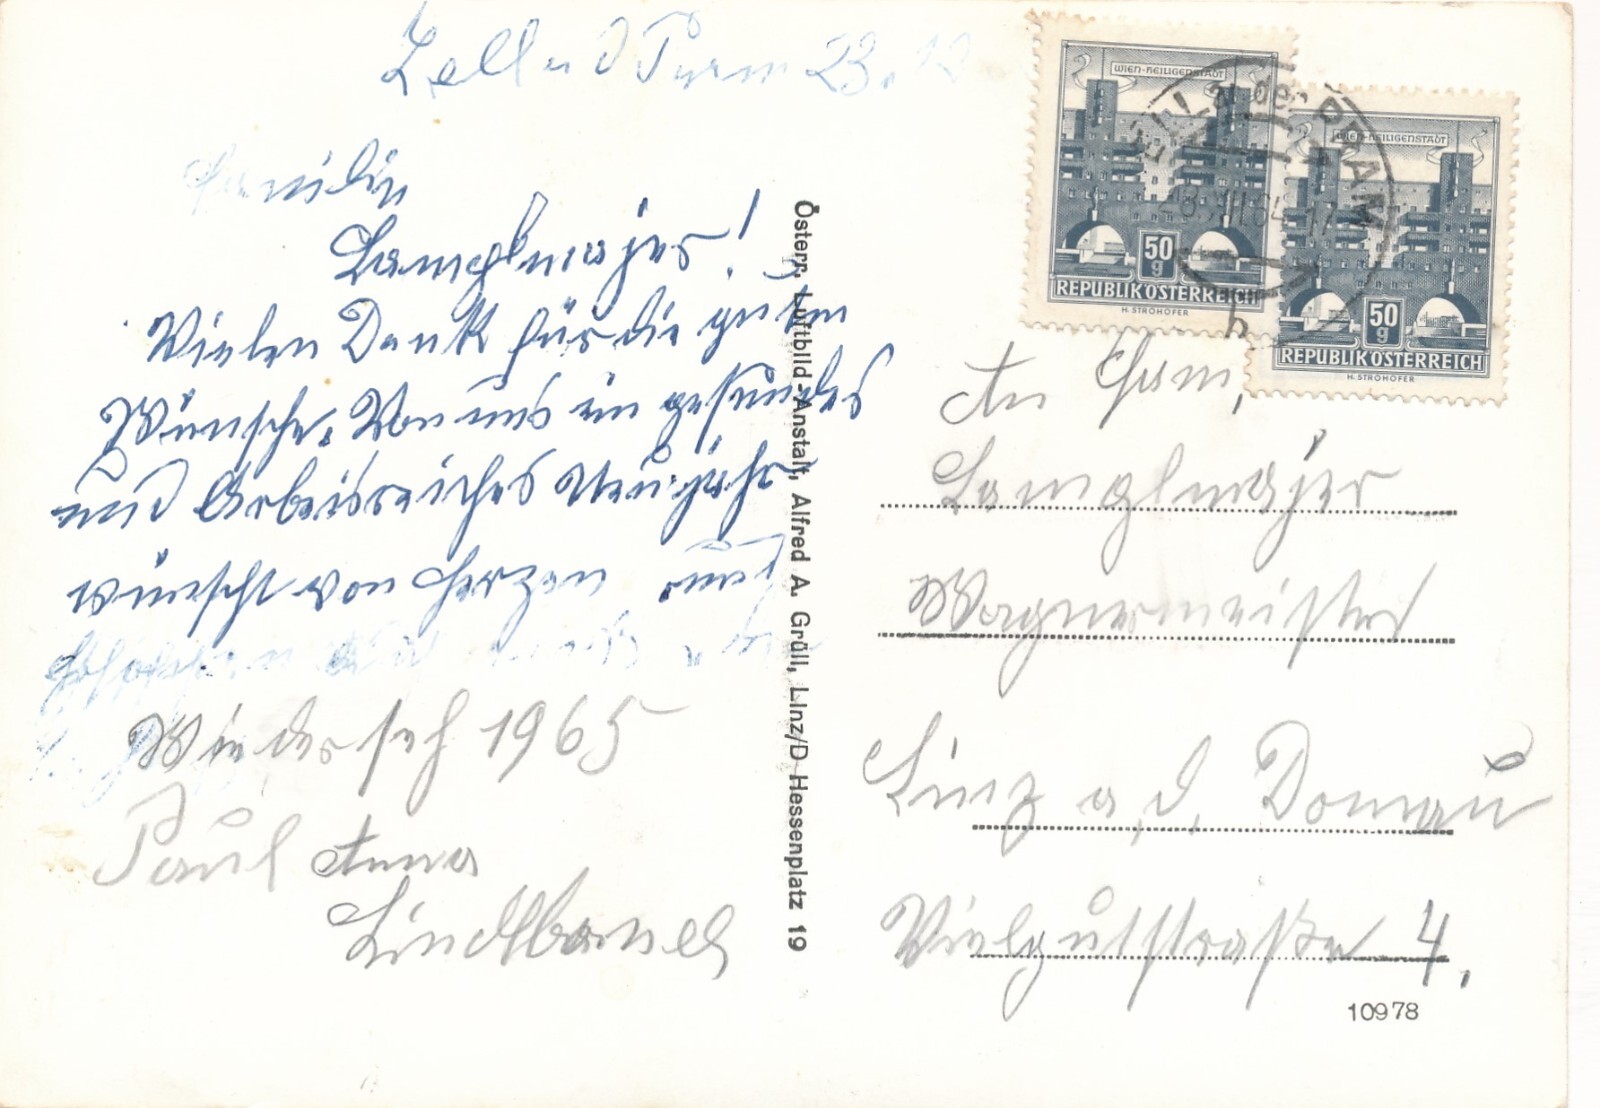 Zell a d Pram 23. 12
Familie
Lamplmajer!
Vielen Dank für die guten
Wünsche. Von uns ein gesundes
und Arbeitsreiches Neujahr
wünscht von Herzen und
Wiederseh 1965
Paul Anna
Österr. Luftbild-Anstalt, Alfred A. Grüll, Linz/D Hessenplatz 19
WIEN-HEILIGENSTADT
50
g
REPUBLIK ÖSTERREICH
H. STROHOFER
WIEN-HEILIGENSTADT
50
g
REPUBLIK ÖSTERREICH
H. STROHOFER
ZELL an der PRAM
An Fam,
Lamplmajer
Wagnermeister
Linz a. d. Donau
Vielgutstraße 4.
10978